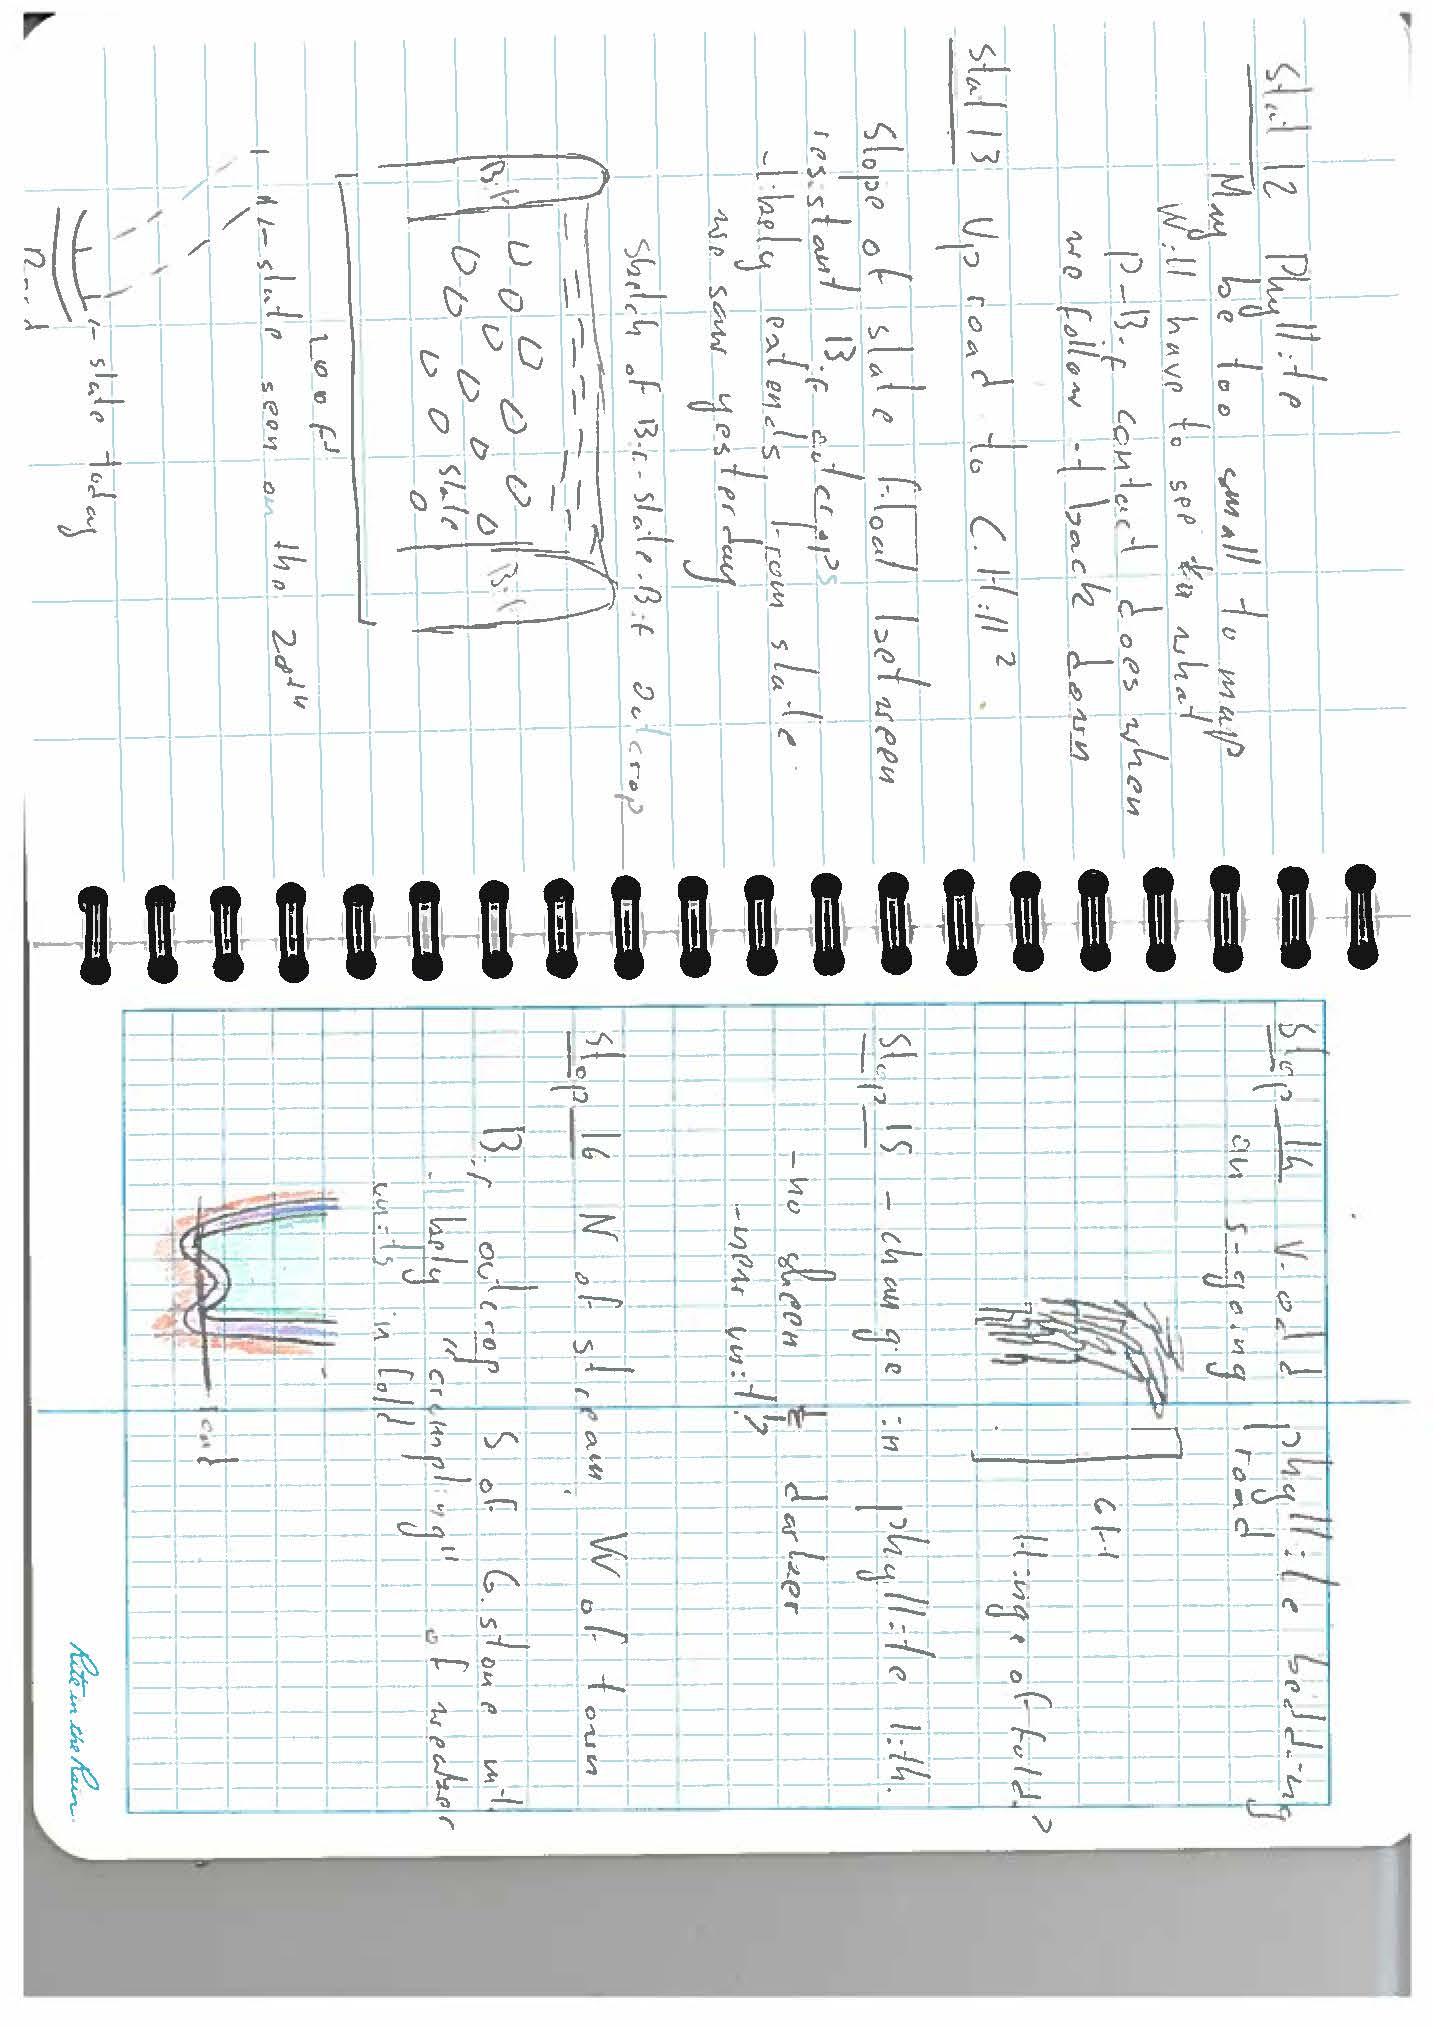 Stat 12 Phyllite
May be too small to map
Will have to see what
P-Bif contact does when
we follow it back down
Stat 13 Up road to C. Hill 2
Slope of slate float between
resistant Bif outcrops
- likely extends from slate
we saw yesterday
Sketch of Bif-slate-Bif outcrop
Bif
slate
Bif
200 ft
<- slate seen on the 20th
<- slate today
Road
Stop 14 V. old phyllite bedding
on S-going road
6 H
Hinge of fold?
Stop 15 - change in phyllite lith.
- no sheen darker
- new unit?
Stop 16 N of stream W of town
Bif outcrop S of G.stone mt.
- likely "crumpling" of weaker
units in fold
Rite in the Rain